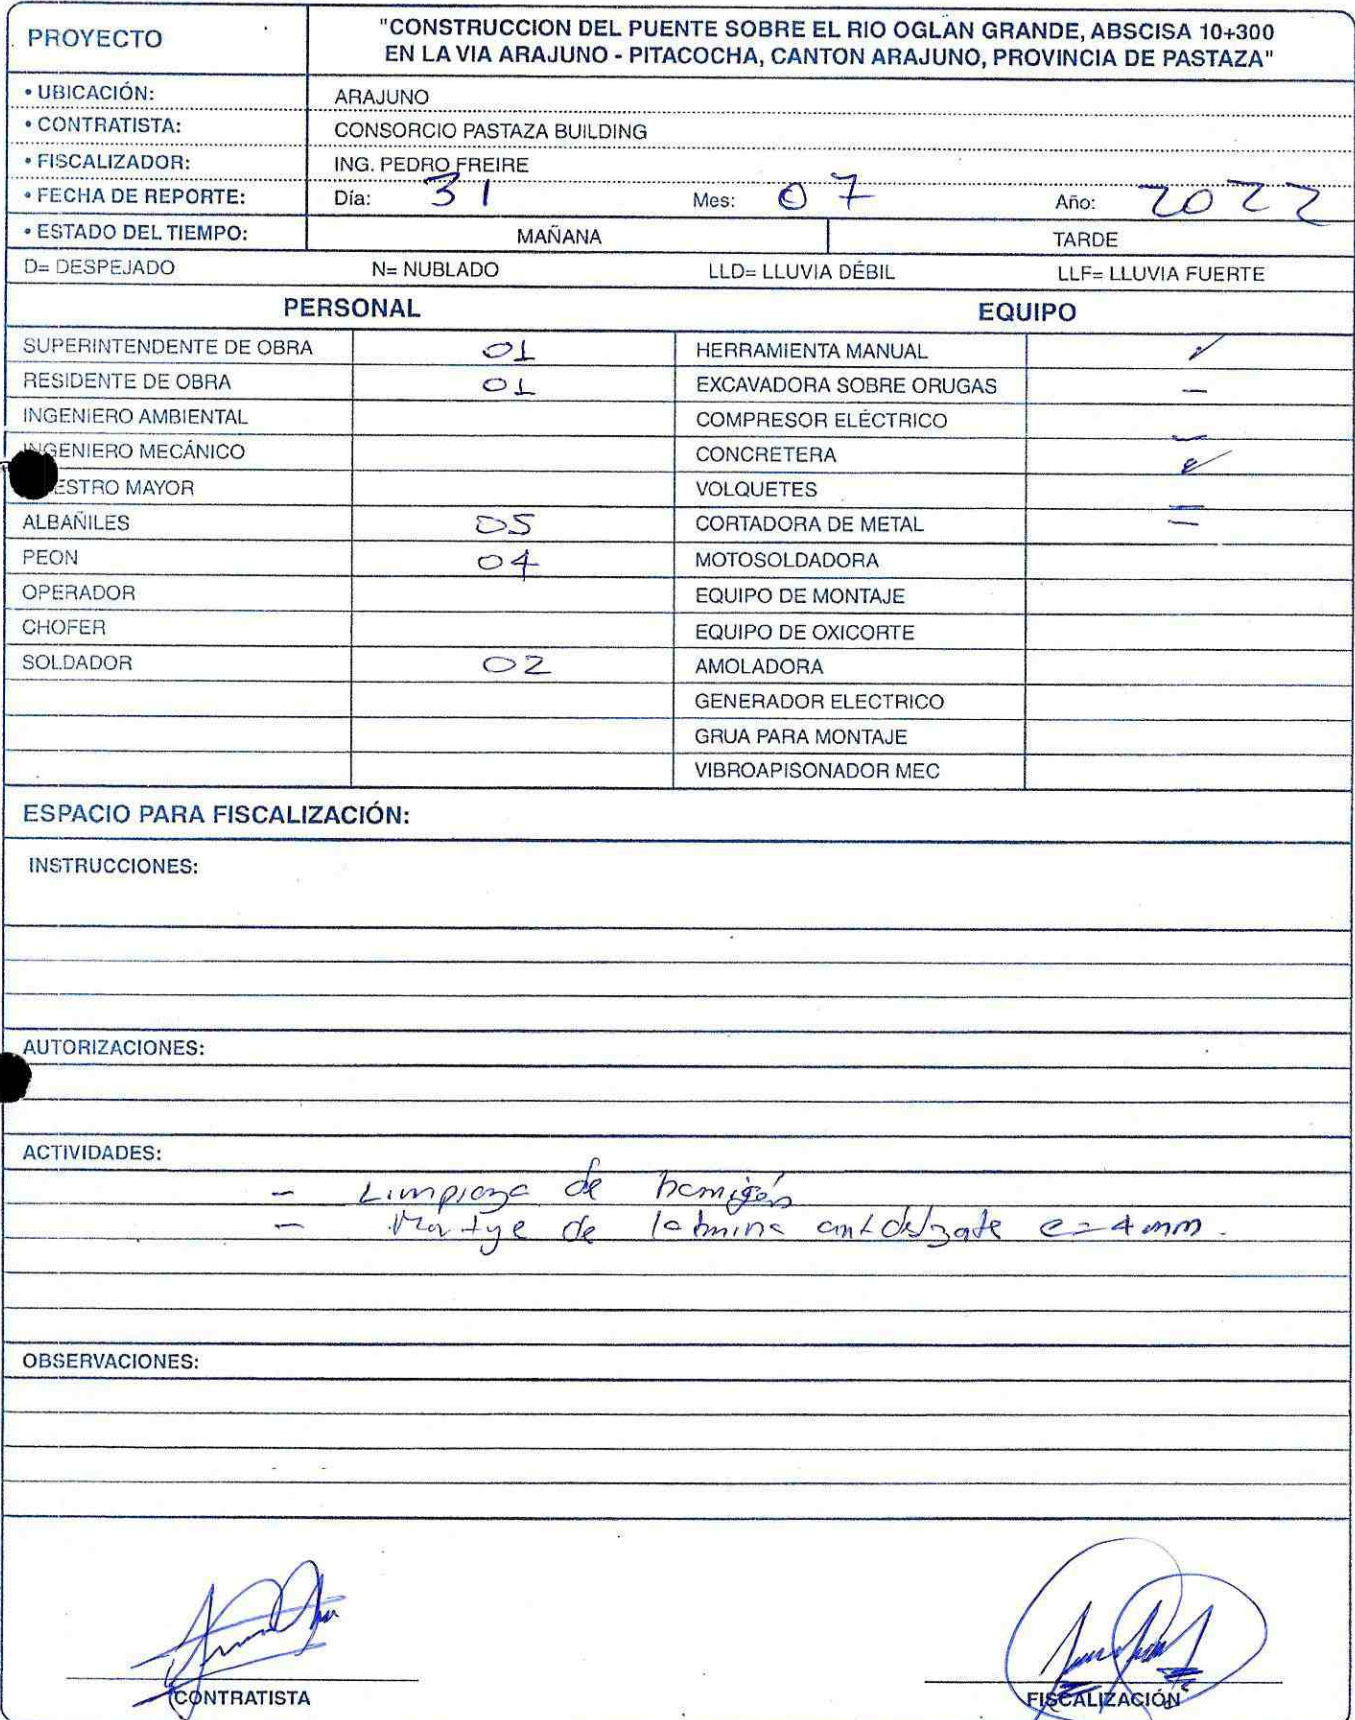 PROYECTO
"CONSTRUCCION DEL PUENTE SOBRE EL RIO OGLAN GRANDE, ABSCISA 10+300
EN LA VIA ARAJUNO - PITACOCHA, CANTON ARAJUNO, PROVINCIA DE PASTAZA"
• UBICACIÓN: ARAJUNO
• CONTRATISTA: CONSORCIO PASTAZA BUILDING
• FISCALIZADOR: ING. PEDRO FREIRE
• FECHA DE REPORTE: Día: 31 Mes: 07 Año: 2022
• ESTADO DEL TIEMPO: MAÑANA TARDE
D= DESPEJADO N= NUBLADO LLD= LLUVIA DÉBIL LLF= LLUVIA FUERTE
PERSONAL EQUIPO
SUPERINTENDENTE DE OBRA 01 HERRAMIENTA MANUAL ✓
RESIDENTE DE OBRA 01 EXCAVADORA SOBRE ORUGAS –
INGENIERO AMBIENTAL COMPRESOR ELÉCTRICO –
INGENIERO MECÁNICO CONCRETERA ✓
ESTRO MAYOR VOLQUETES –
ALBAÑILES 05 CORTADORA DE METAL –
PEON 04 MOTOSOLDADORA
OPERADOR EQUIPO DE MONTAJE
CHOFER EQUIPO DE OXICORTE
SOLDADOR 02 AMOLADORA
GENERADOR ELECTRICO
GRUA PARA MONTAJE
VIBROAPISONADOR MEC
ESPACIO PARA FISCALIZACIÓN:
INSTRUCCIONES:
AUTORIZACIONES:
ACTIVIDADES:
- Limpieza de hormigón
- de lamina e=4mm.
OBSERVACIONES:
CONTRATISTA FISCALIZACIÓN